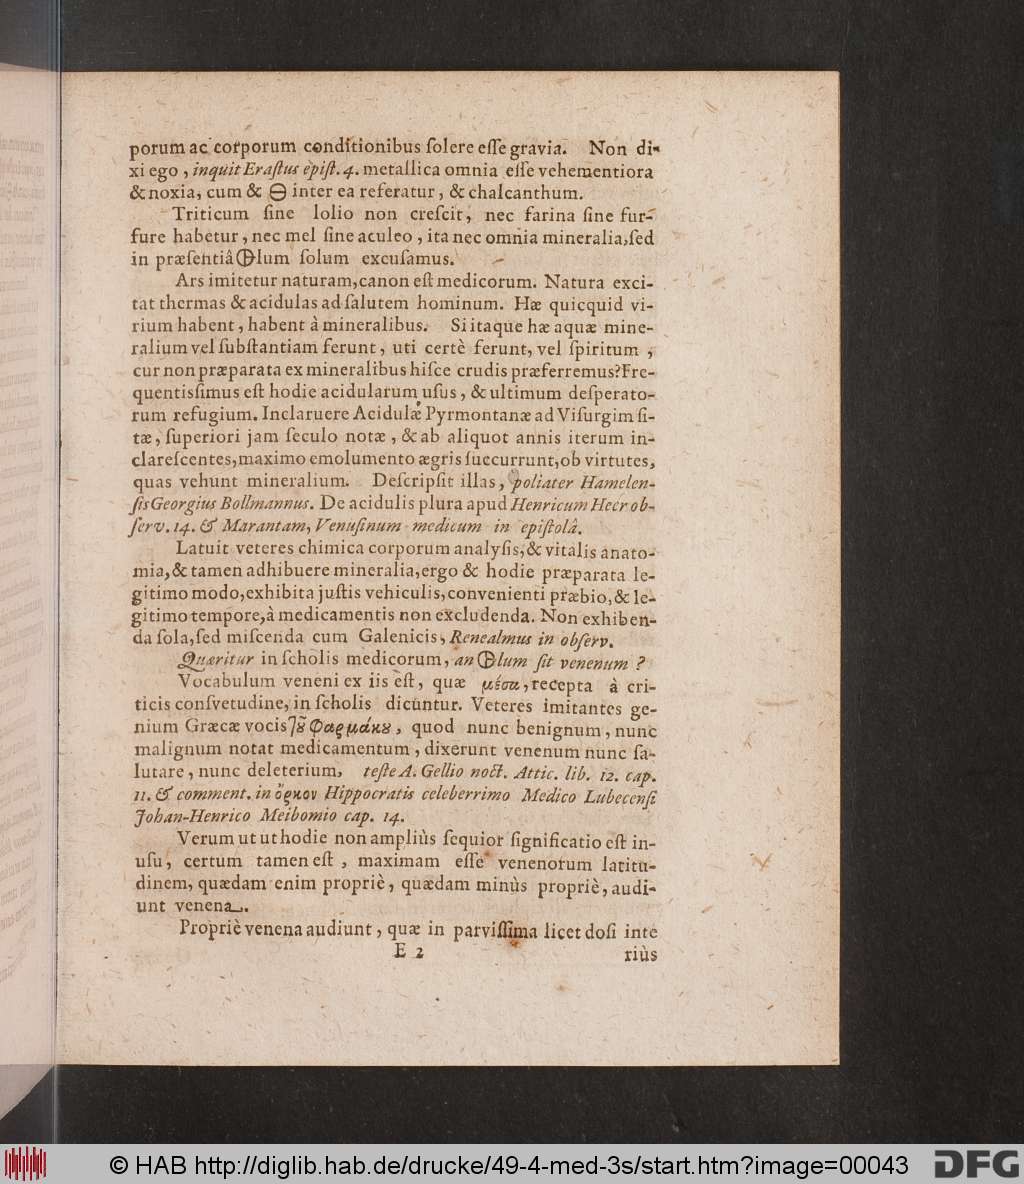 porum ac corporum conditionibus ſolere eſſe gravia. Non di-
xi ego, inquit Eraſtus epiſt. 4. metallica omnia eſſe vehementiora
& noxia, cum & 🜔 inter ea referatur, & chalcanthum.
Triticum ſine lolio non creſcit, nec farina ſine fur-
fure habetur, nec mel ſine aculeo, ita nec omnia mineralia, ſed
in præſentiâ lum ſolum excuſamus.
Ars imitetur naturam, canon eſt medicorum. Natura exci-
tat thermas & acidulas ad ſalutem hominum. Hæ quicquid vi-
rium habent, habent à mineralibus. Si itaque hæ aquæ mine-
ralium vel ſubſtantiam ferunt, uti certè ferunt, vel ſpiritum,
cur non præparata ex mineralibus hiſce crudis præferremus? Fre-
quentiſſimus eſt hodie acidularum uſus, & ultimum deſperato-
rum refugium. Inclaruere Acidulæ Pyrmontanæ ad Viſurgim ſi-
tæ, ſuperiori jam ſeculo notæ, & ab aliquot annis iterum in-
clareſcentes, maximo emolumento ægris ſuccurrunt, ob virtutes,
quas vehunt mineralium. Deſcripſit illas, poliater Hamelen-
ſis Georgius Bollmannus. De acidulis plura apud Henricum Heer ob-
ſerv. 14. & Marantam, Venuſinum medicum in epiſtolâ.
Latuit veteres chimica corporum analyſis, & vitalis anato-
mia, & tamen adhibuere mineralia, ergo & hodie præparata le-
gitimo modo, exhibita juſtis vehiculis, convenienti præbio, & le-
gitimo tempore, à medicamentis non excludenda. Non exhiben-
da ſola, ſed miſcenda cum Galenicis, Renealmus in obſerv.
Quæritur in ſcholis medicorum, an lum ſit venenum?
Vocabulum veneni ex iis eſt, quæ μέσα, recepta à cri-
ticis conſvetudine, in ſcholis dicuntur. Veteres imitantes ge-
nium Græcæ vocis τȣ͂ φαρμάκȣ, quod nunc benignum, nunc
malignum notat medicamentum, dixerunt venenum nunc ſa-
lutare, nunc deleterium, teſte A. Gellio noct. Attic. lib. 12. cap.
11. & comment. in ὅρκον Hippocratis celeberrimo Medico Lubecenſi
Johan-Henrico Meibomio cap. 14.
Verum ut ut hodie non ampliùs ſequior ſignificatio eſt in-
uſu, certum tamen eſt, maximam eſſe venenorum latitu-
dinem, quædam enim propriè, quædam minùs propriè, audi-
unt venena.
Propriè venena audiunt, quæ in parviſſima licet doſi inte
E 2
riùs
© HAB http://diglib.hab.de/drucke/49-4-med-3s/start.htm?image=00043
DFG